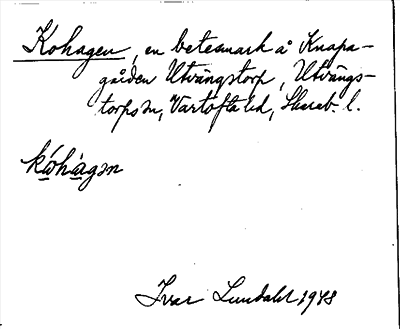 Kohagen, en betesmark å Knapa-
gården Utvängstorp, Utvängs-
torps sn, Vartofta hd, Skarab. l.
kóhàgən
Ivar Lundahl 1948